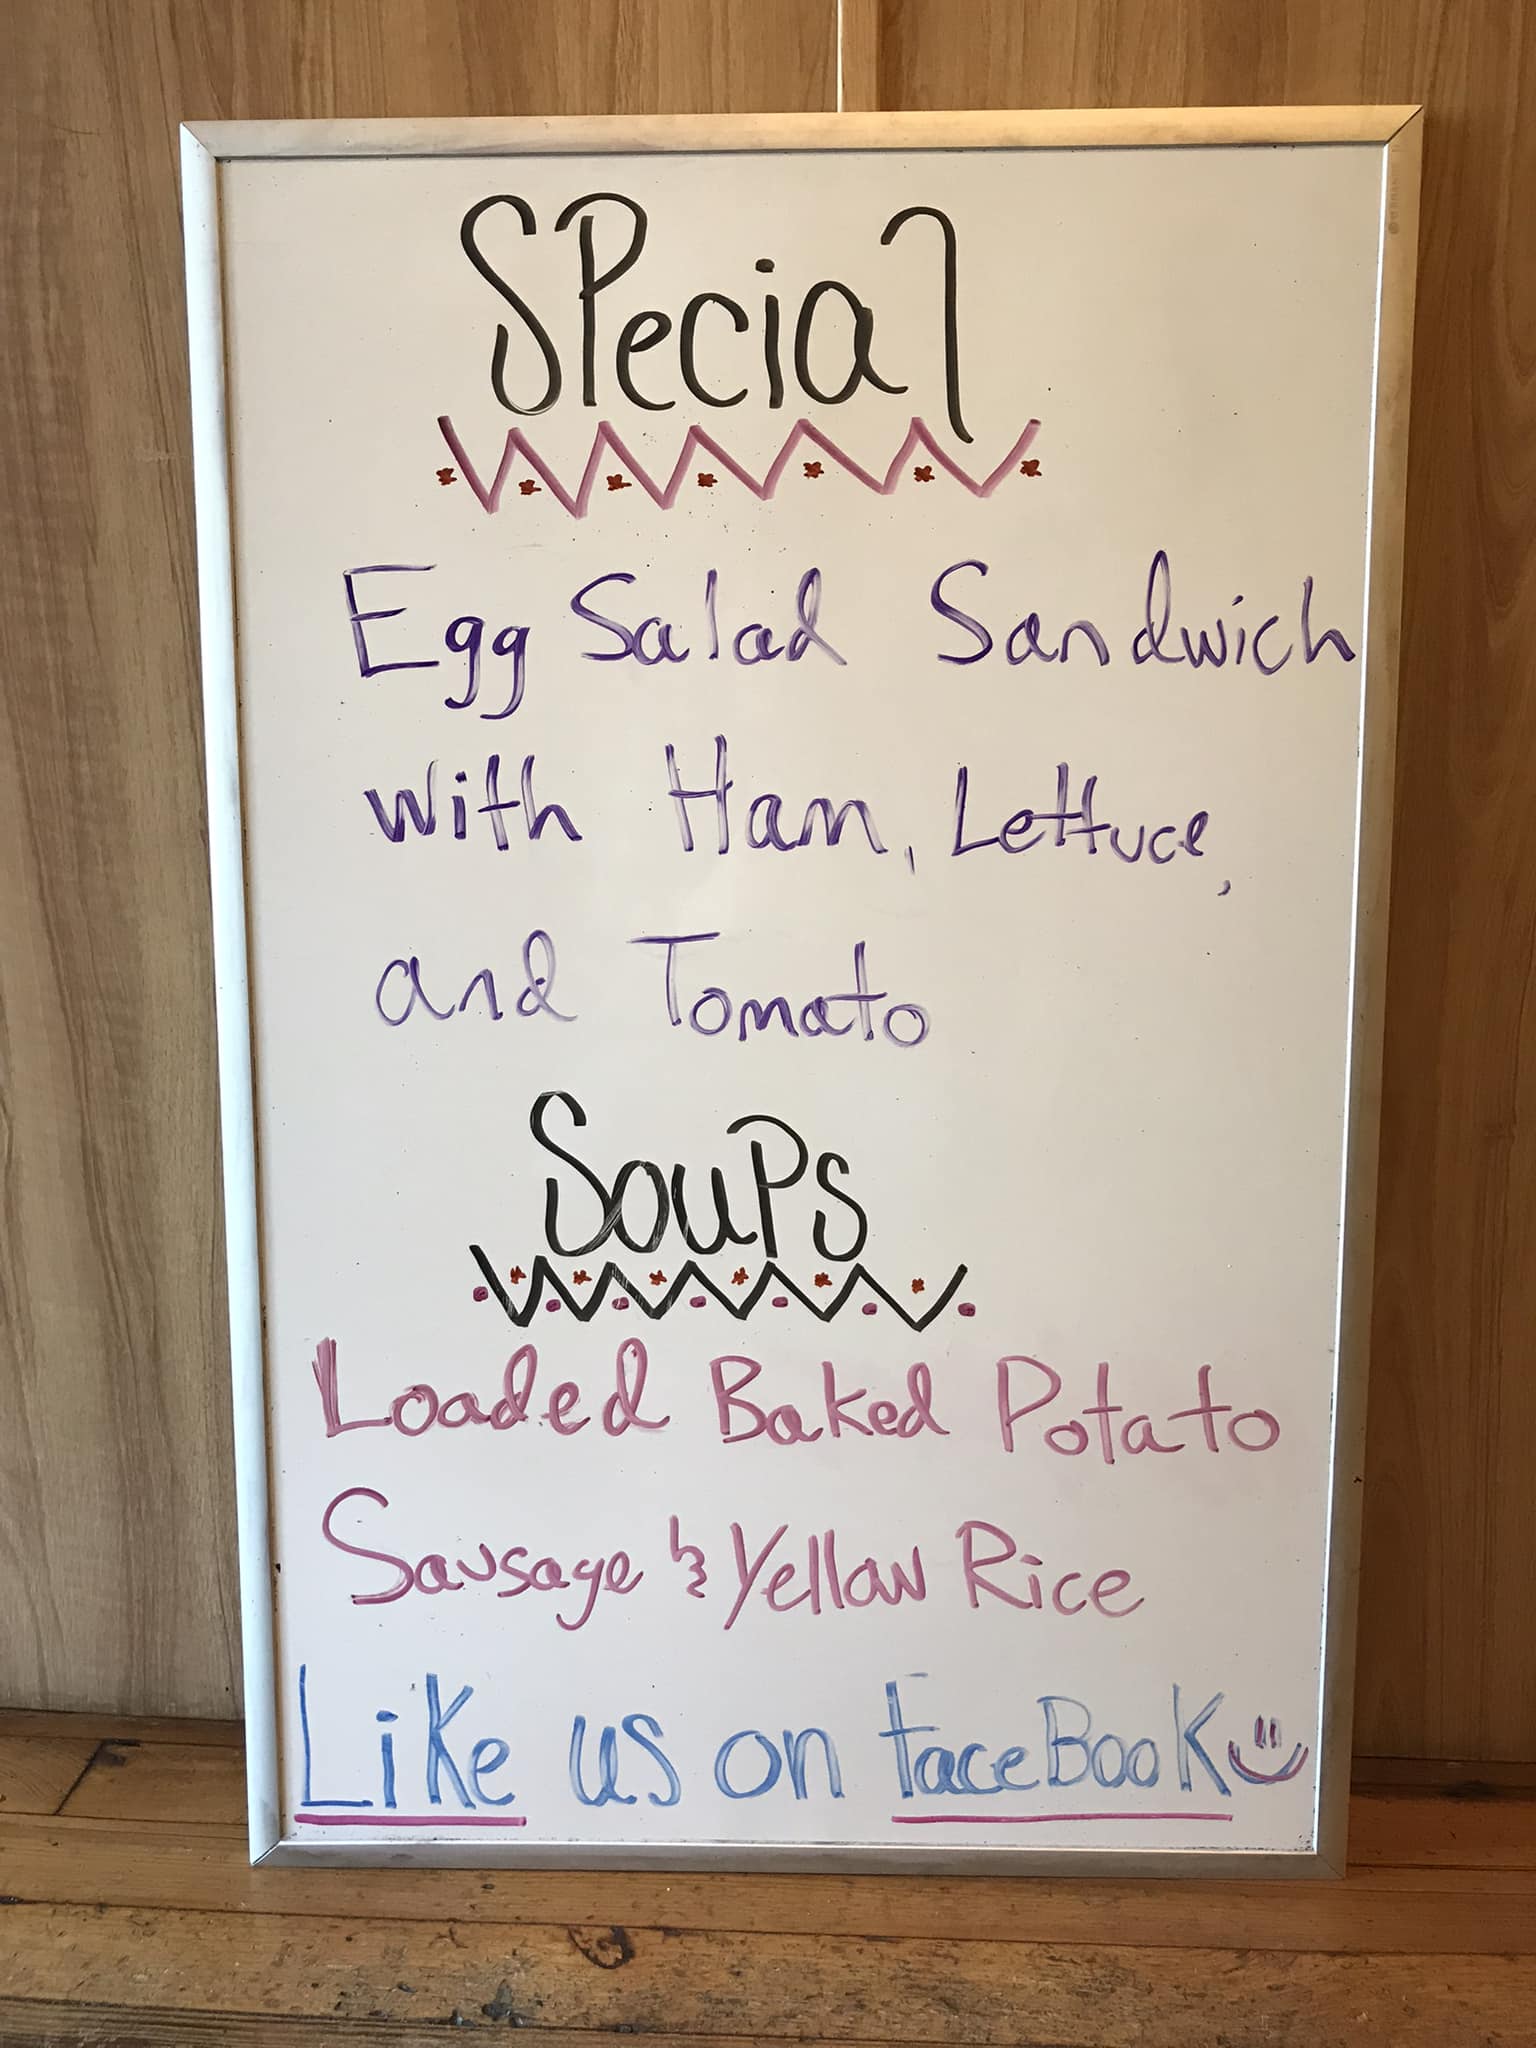 SPecial
Egg Salad Sandwich
with Ham, Lettuce,
and Tomato
SouPs
Loaded Baked Potato
Sausage & Yellow Rice
LiKe us on faceBooK